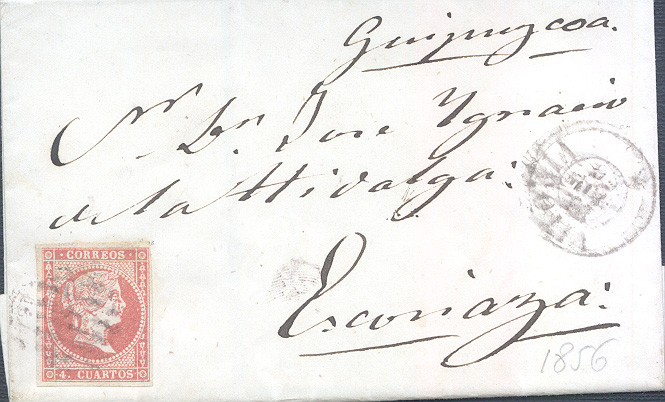 Guipuzcoa.
Sr. Dn. Jose Ygnacio
de la Hidalga.
Escoriaza.
CORREOS
4. CUARTOS
1856